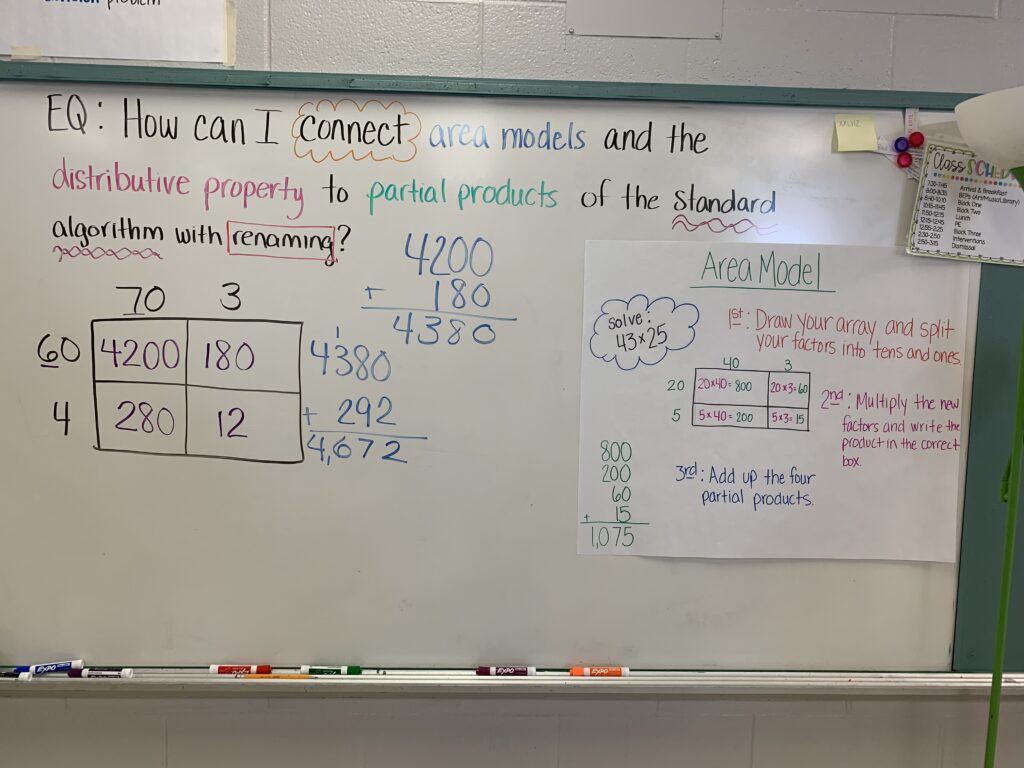 division problem
EQ: How can I connect area models and the
distributive property to partial products of the standard
algorithm with renaming?
70 3
60 4200 180
4 280 12
4200
+ 180
4380
1
4380
+ 292
4,672
Area Model
solve:
43x25
1st: Draw your array and split
your factors into tens and ones.
40 3
20 20x40=800 20x3=60
5 5x40=200 5x3=15
2nd: Multiply the new
factors and write the
product in the correct
box.
3rd: Add up the four
partial products.
800
200
60
+ 15
1,075
Class SCHED
7:30-7:45 Arrival & Breakfast
8:00-8:35 BEPs (Art/Music/Library)
8:40-10:10 Block One
10:15-11:45 Block Two
11:50-12:15 Lunch
12:15-12:45 PE
12:55-2:25 Block Three
2:30-2:50 Interventions
2:50-3:15 Dismissal
EXPO
EXPO
EXPO